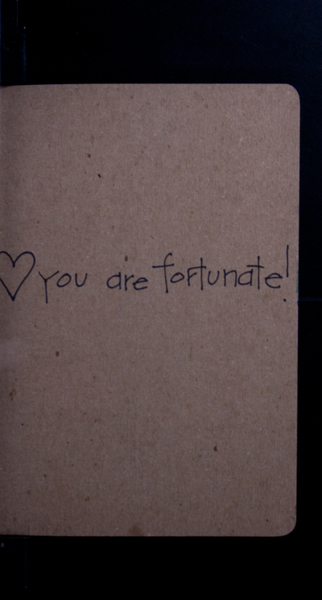 ♡ you are fortunate!